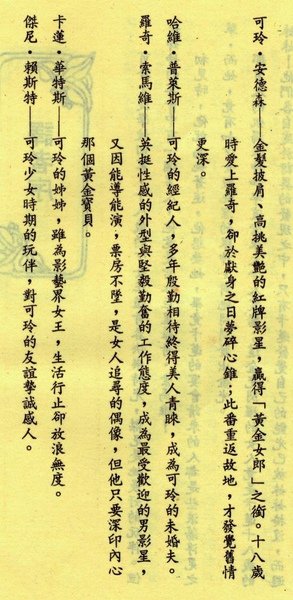 可玲・安德森——金髮披肩、高挑美艷的紅牌影星，贏得「黃金女郎」之銜。十八歲
時愛上羅奇，卻於獻身之日夢碎心錐；此番重返故地，才發覺舊情
更深。
哈維・普萊斯——可玲的經紀人，多年殷勤相待終得美人青睞，成為可玲的未婚夫。
羅奇・索馬維——英挺性感的外型與堅毅勤奮的工作態度，成為最受歡迎的男影星，
又因能導能演，票房不墜，是女人追尋的偶像，但他只要深印內心
那個黃金寶貝。
卡蓮・華特斯——可玲的姊姊，雖為影藝界女王，生活行止卻放浪無度。
傑尼・賴斯特——可玲少女時期的玩伴，對可玲的友誼摯誠感人。